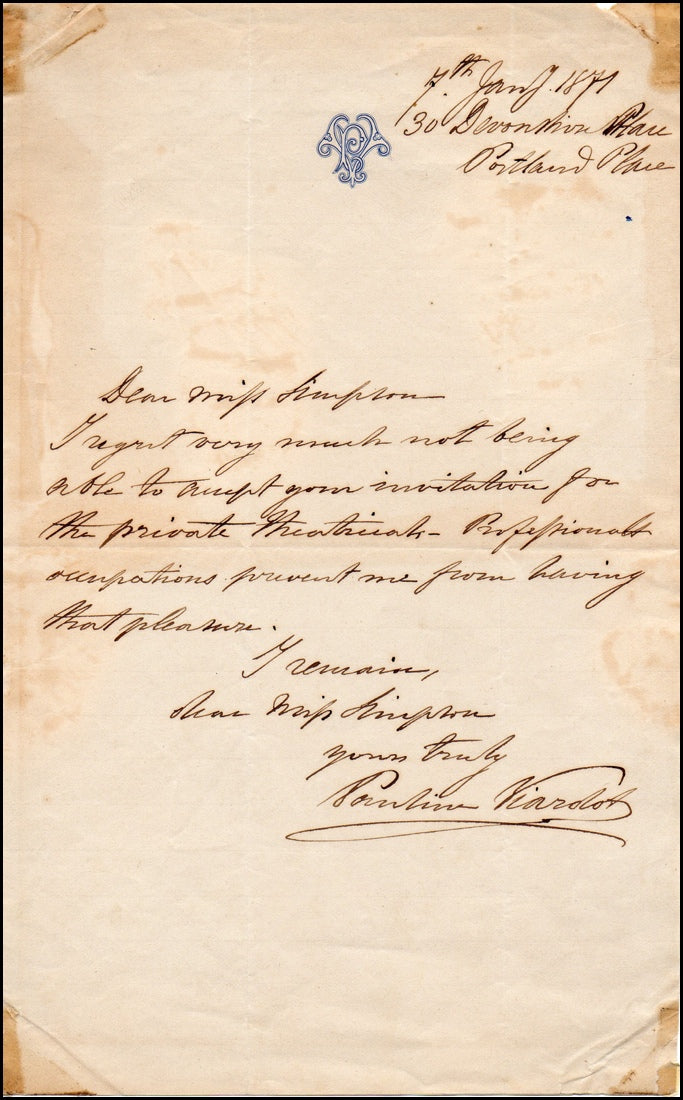 7.th Jany. 1871
30 Devonshire Place
Portland Place
PV
Dear Miss Simpson
I regret very much not being
able to accept your invitation for
the private theatricals - Professional
occupations prevent me from having
that pleasure.
I remain,
dear Miss Simpson
yours truly
Pauline Viardot